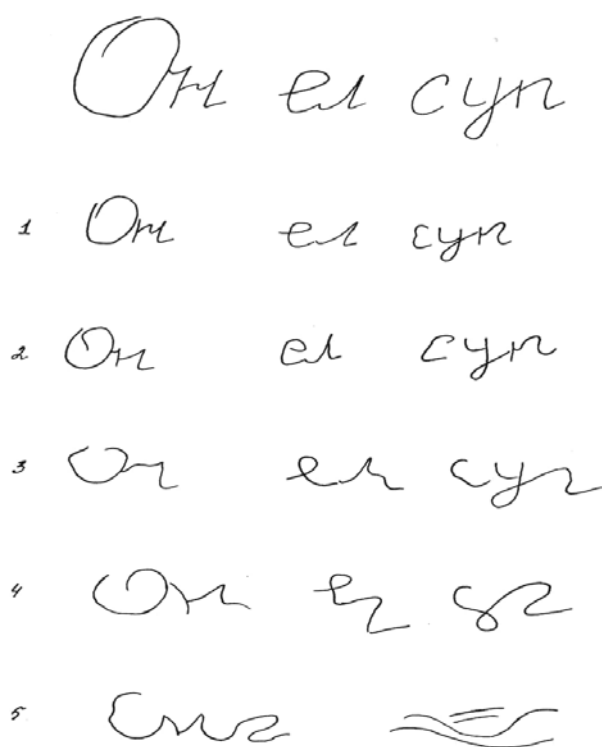 Он ел суп
1 Он ел суп
2 Он ел суп
3 Он ел суп
4 Он
5